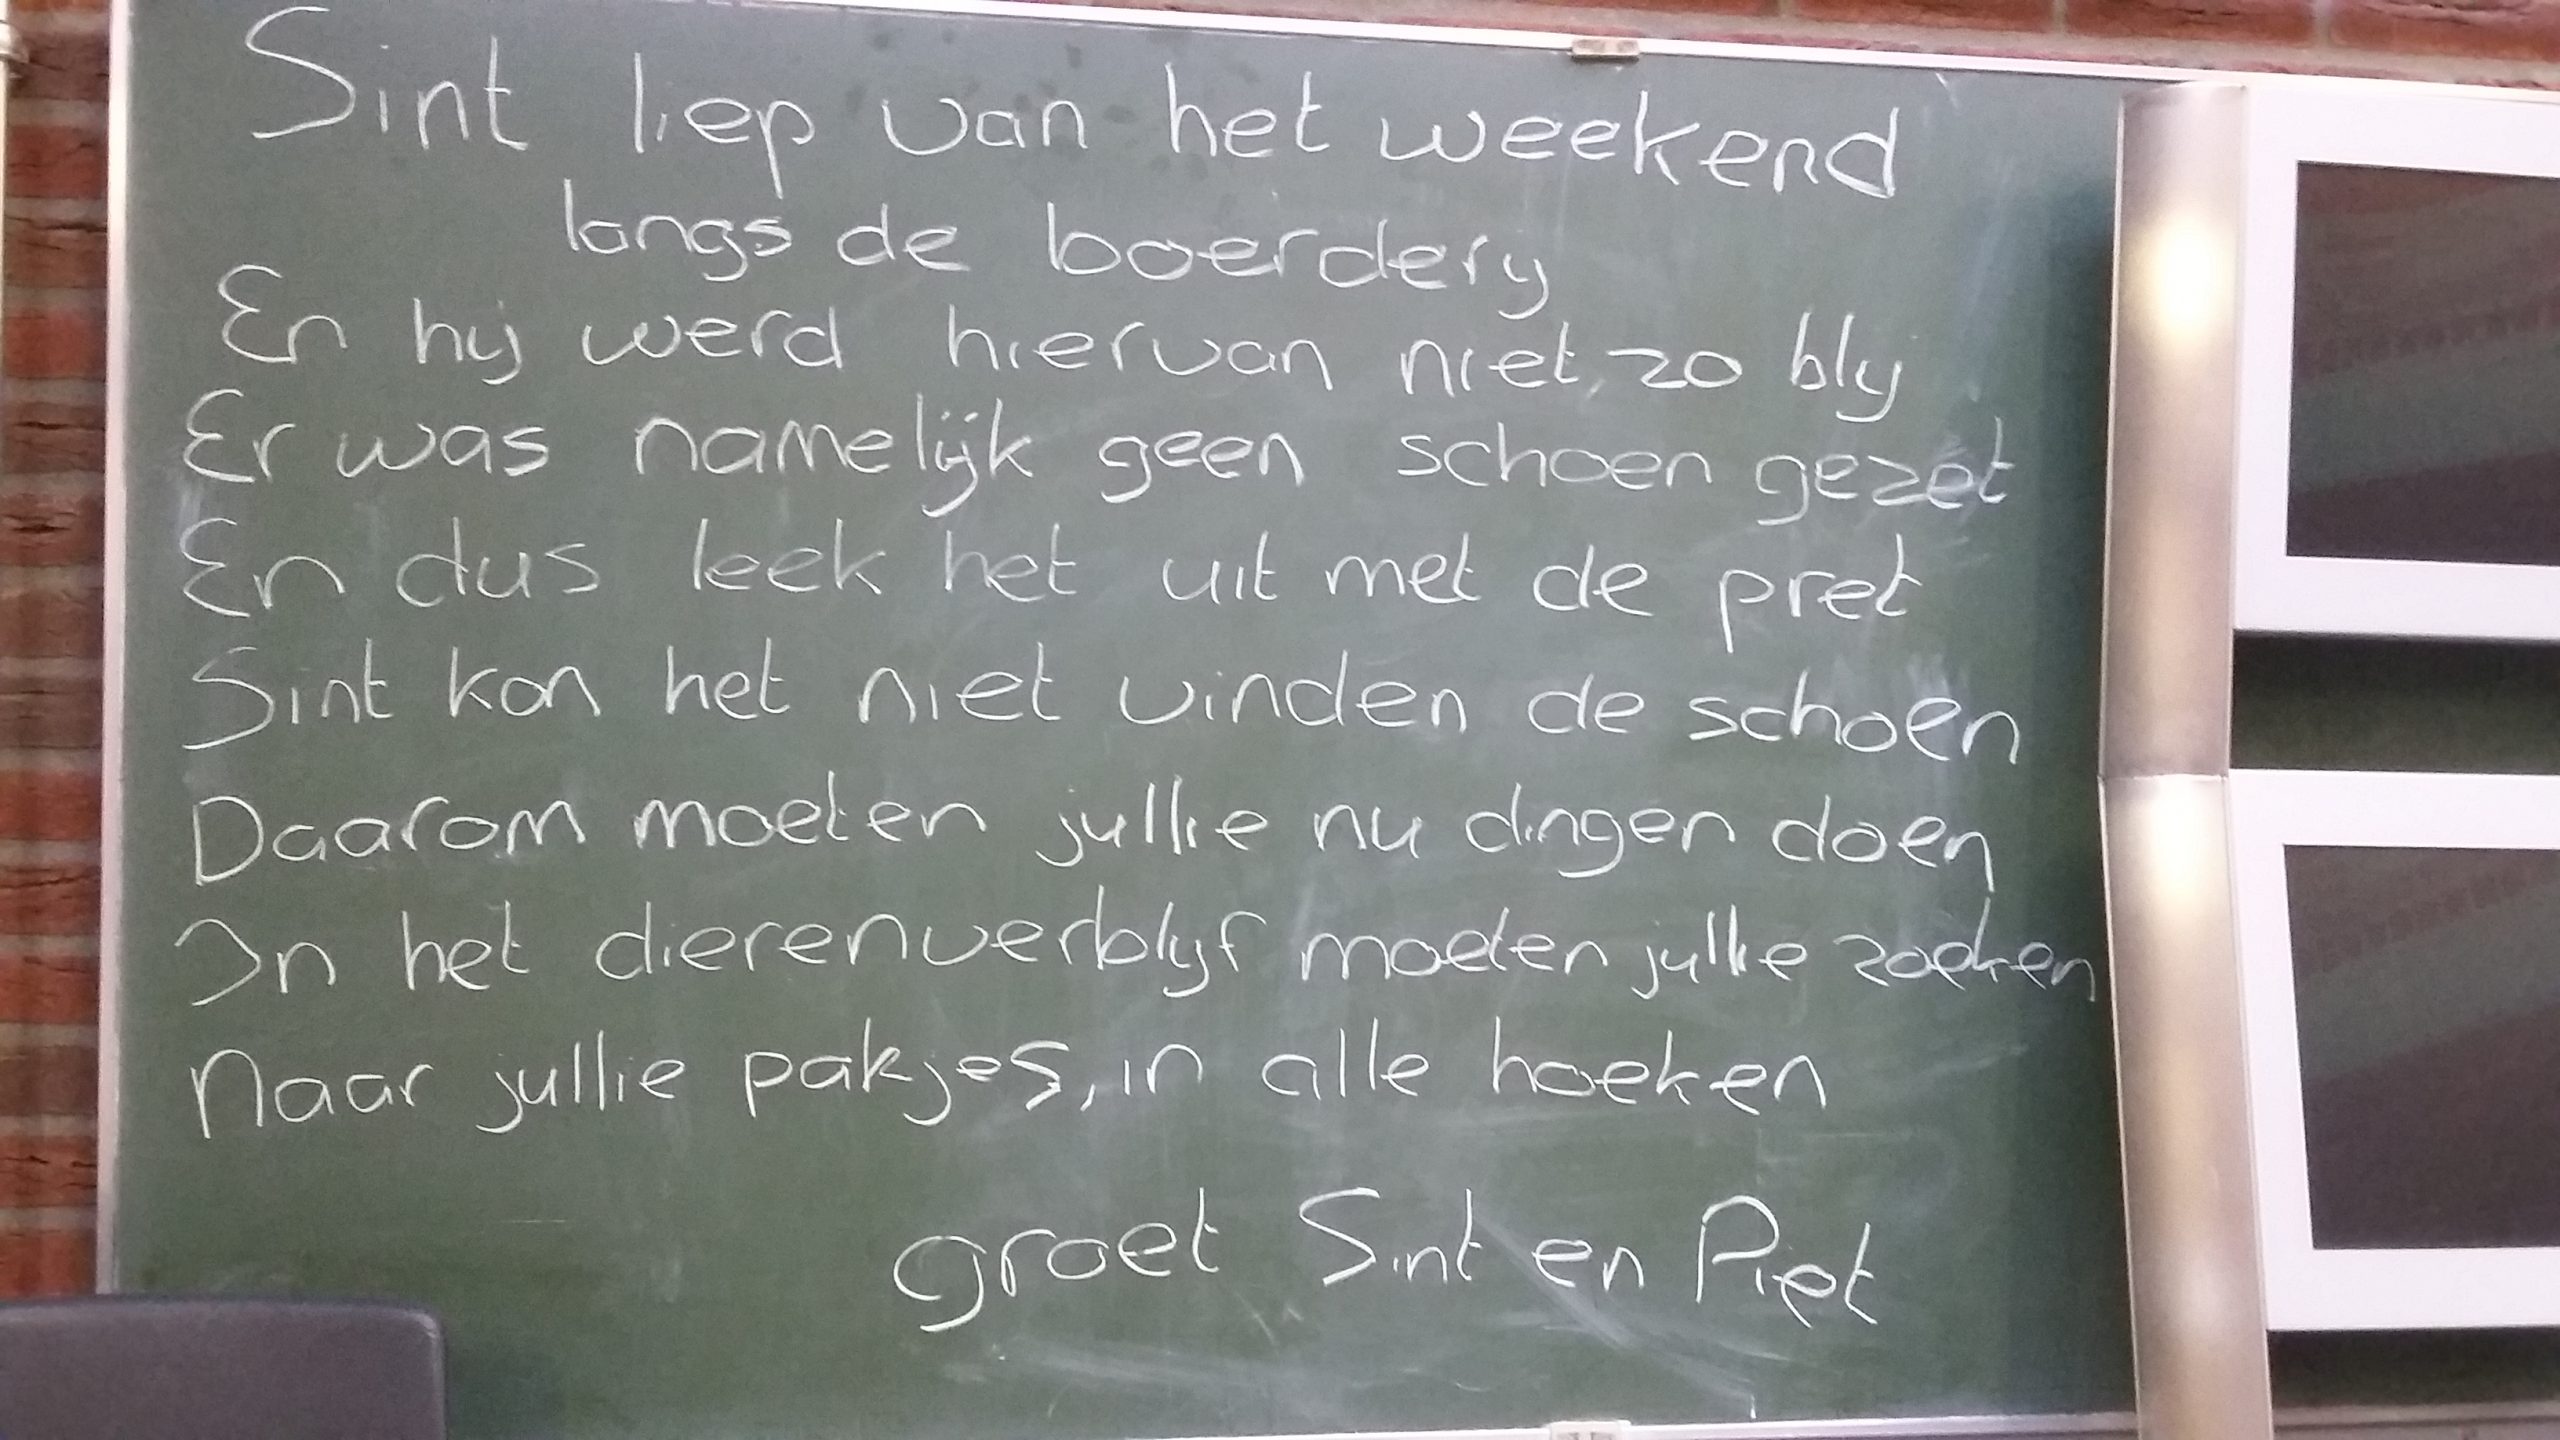 Sint liep van het weekend
langs de boerderij
En hij werd hiervan niet zo blij
Er was namelijk geen schoen gezet
En dus leek het uit met de pret
Sint kon het niet vinden de schoen
Daarom moeten jullie nu dingen doen
In het dierenverblijf moeten jullie zoeken
Naar jullie pakjes, in alle hoeken
groet Sint en Piet